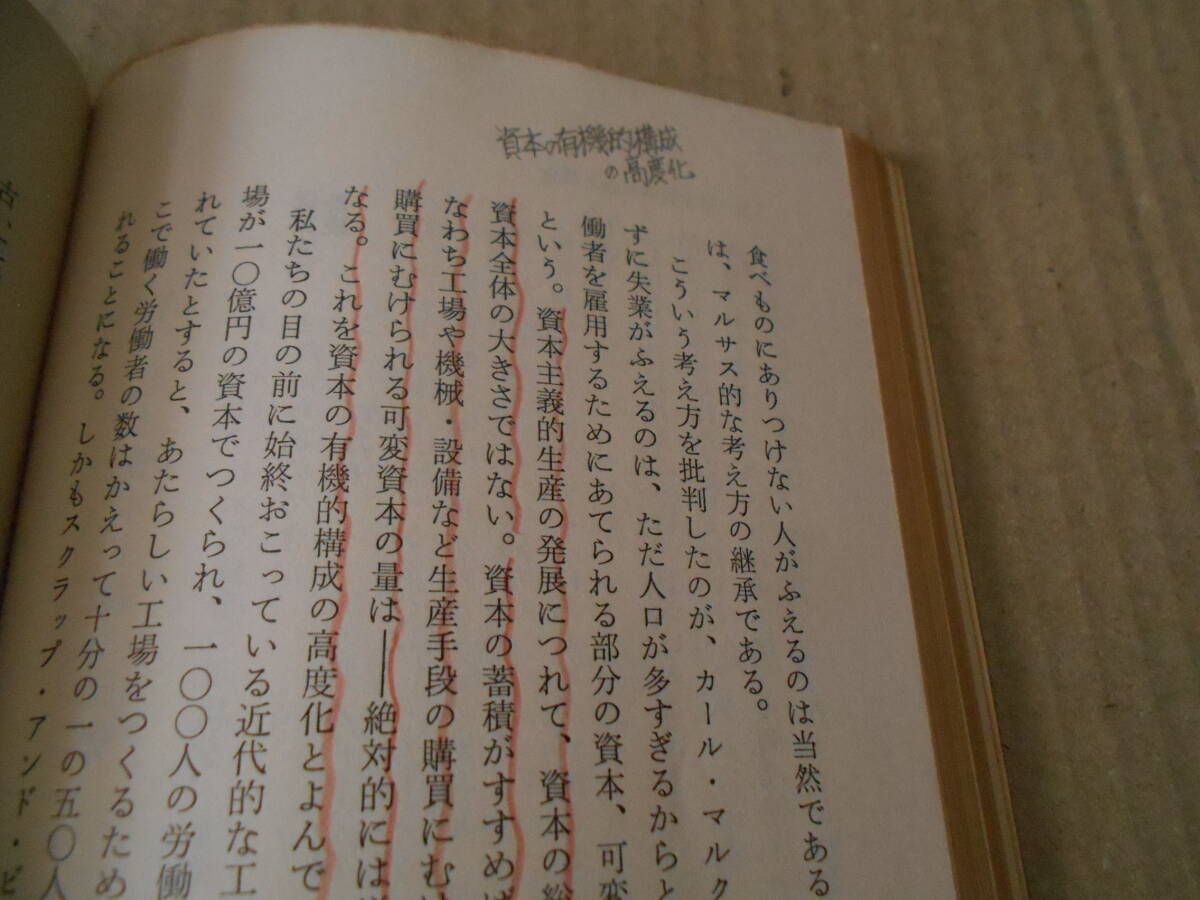 資本の有機的構成
の高度化
食べものにありつけない人がふえるのは当然である
は、マルサス的な考え方の継承である。
こういう考え方を批判したのが、カール・マルク
ずに失業がふえるのは、ただ人口が多すぎるからと
働者を雇用するためにあてられる部分の資本、可変
という。資本主義的生産の発展につれて、資本の総
資本全体の大きさではない。資本の蓄積がすすめば
なわち工場や機械・設備など生産手段の購買にむけ
購買にむけられる可変資本の量は――絶対的には
なる。これを資本の有機的構成の高度化とよんで
私たちの目の前に始終おこっている近代的な工
場が一〇億円の資本でつくられ、一〇〇人の労働
れていたとすると、あたらしい工場をつくるため
こで働く労働者の数はかえって十分の一の五〇人
れることになる。しかもスクラップ・アンド・ビ